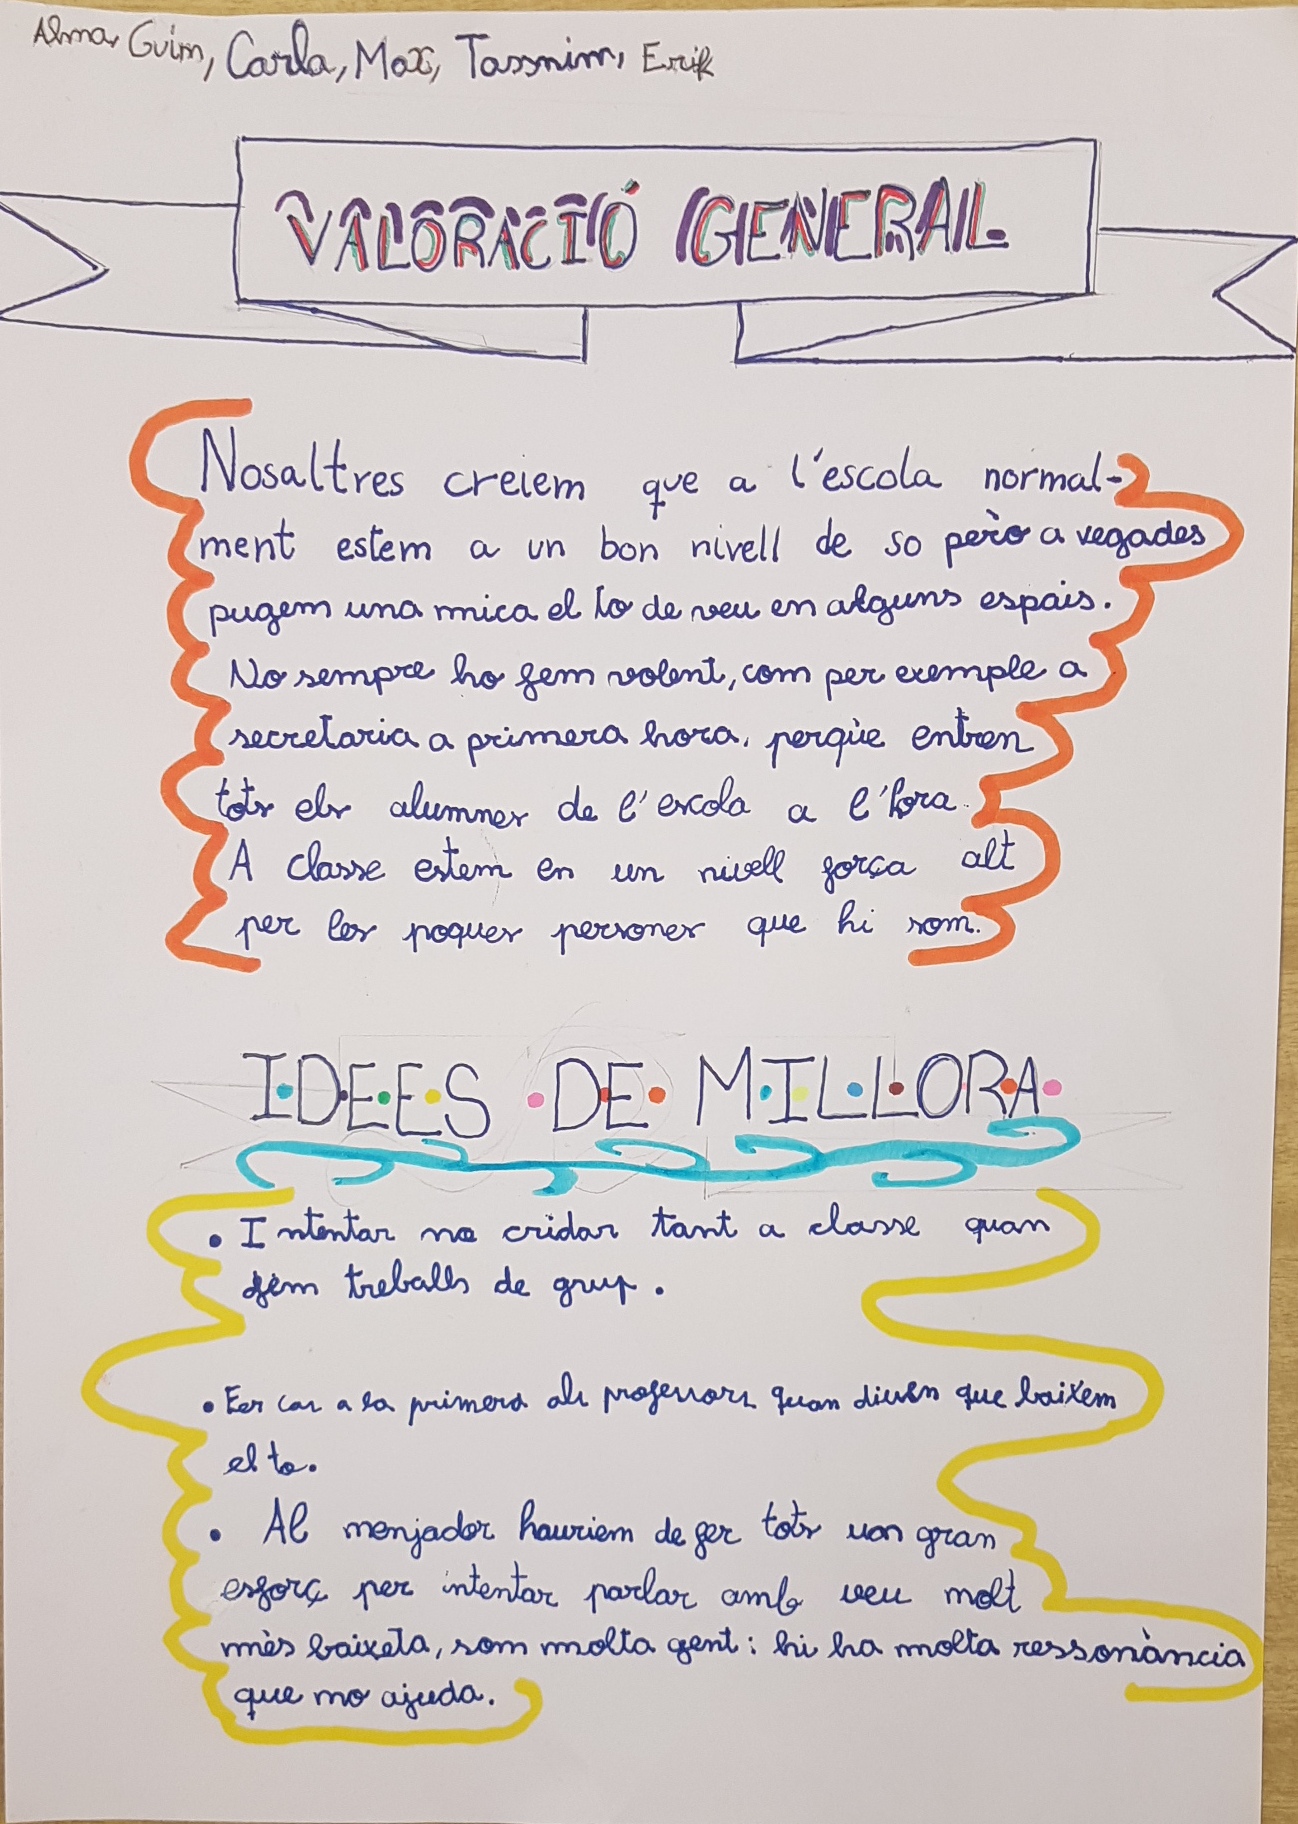 Alma, Guim, Carla, Max, Tassnim, Erik
VALORACIÓ GENERAL
Nosaltres creiem que a l'escola normal-
ment estem a un bon nivell de so però a vegades
pugem una mica el to de veu en alguns espais.
No sempre ho fem volent, com per exemple a
secretaria a primera hora, perquè entren
tots els alumnes de l'escola a l'hora.
A classe estem en un nivell força alt
per les poques persones que hi som.
IDEES DE MILLORA
• Intentar no cridar tant a classe quan
fem treballs de grup.
• Fer cas a la primera als professors quan diuen que baixem
el to.
• Al menjador hauriem de fer tots un gran
esforç per intentar parlar amb veu molt
mès baixeta, som molta gent i hi ha molta ressonància
que no ajuda.